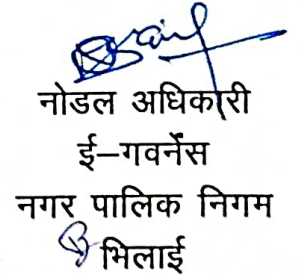 नोडल अधिकारी
ई–गवर्नेंस
नगर पालिक निगम
भिलाई